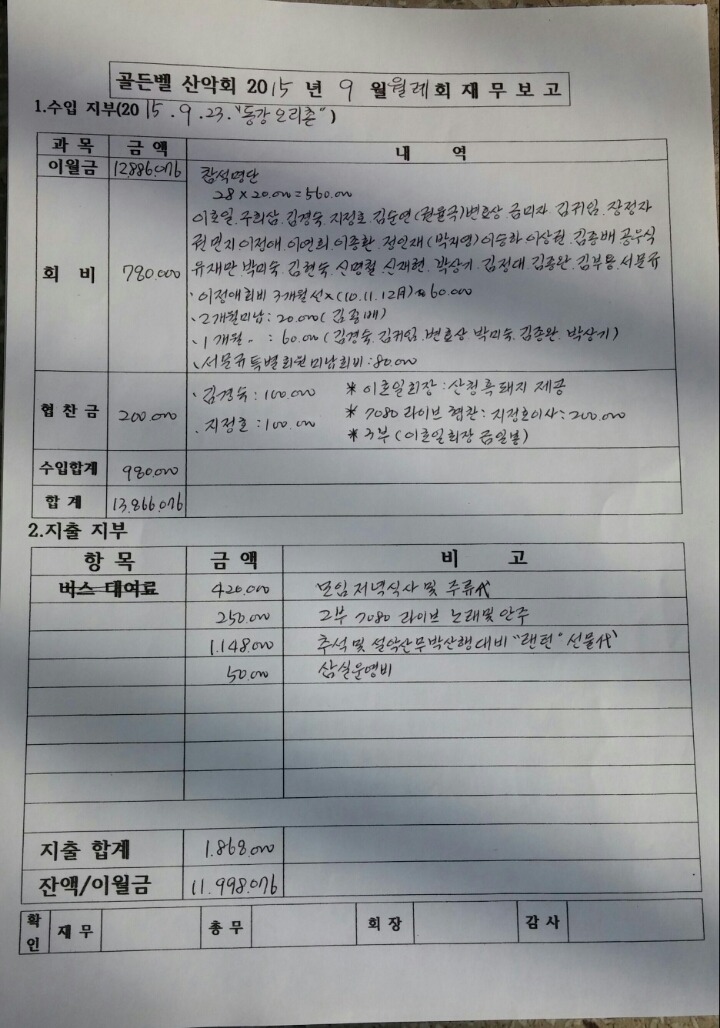 골든벨 산악회 2015 년 9 월월례회 재무보고
1.수입 지부(2015.9.23."동강오리촌")
과목 금액 내 역
이월금 12,886,076 참석명단
28×20.000=560.000
이호일.주희삼.김경숙.지정호.김순연(권윤국)변효상.금미자.김귀임.장정자
권민지이정애.이연희.이종환.정인재(박지영)이승하.이상권.김종배.공무식
회 비 780.000 유재만.박미숙.김현숙.신명철.신재현.박상기.김정대.김종완.김부용.서문규
·이정애회비 3개월선×(10.11.12月) 60.000
·2개월미납:20.000(김종배)
·1개월 〃 : 60.000(김경숙.김귀임.변효상.박미숙.김종완.박상기)
·서문규특별회원미납회비:80.000
협찬금 200.000 ·김경숙:100.000 *이호일회장:산청흑돼지 제공
·지정호:100.000 *7080 라이브 협찬:지정호이사:200.000
*3부(이호일회장 금일봉)
수입합계 980.000
합 계 13.866.076
2.지출 지부
항 목 금 액 비 고
버스 대여료 420.000 모임 저녁식사 및 주류代
250.000 2부 7080 라이브 노래및 안주
1.148.000 추석 및 설악산무박산행대비 "랜턴" 선물代
50.000 산실운영비
지출 합계 1.868.000
잔액/이월금 11.998.076
확인 재무 총무 회장 감사